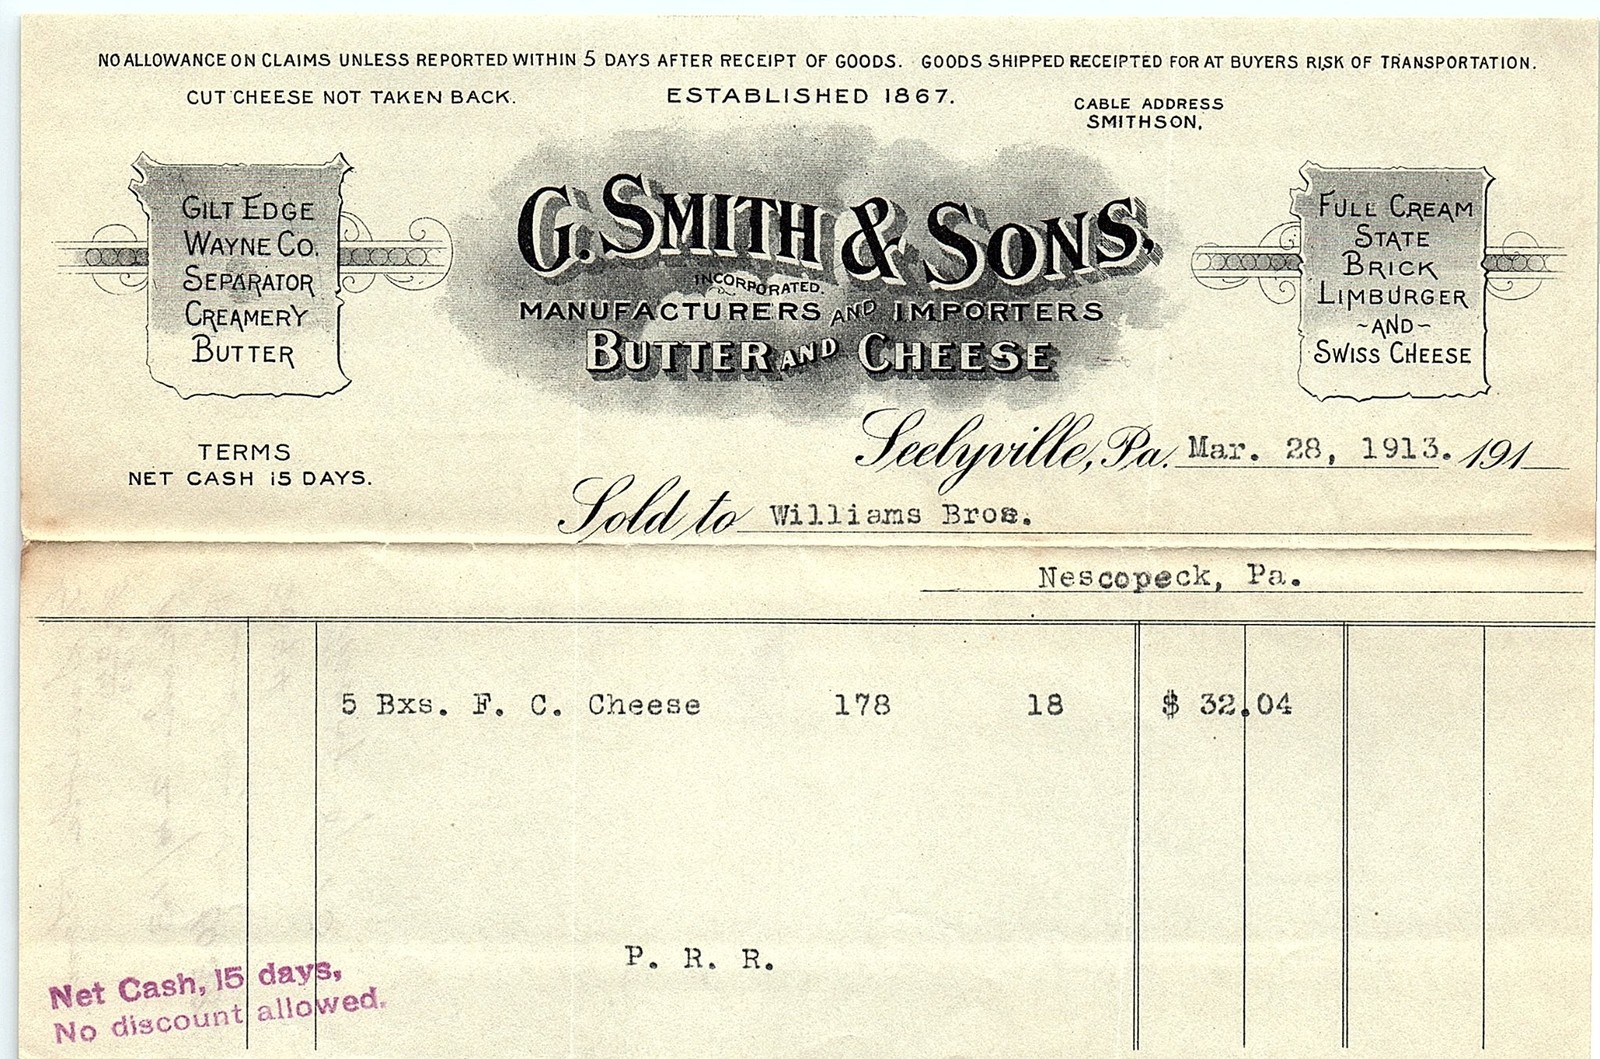 NO ALLOWANCE ON CLAIMS UNLESS REPORTED WITHIN 5 DAYS AFTER RECEIPT OF GOODS. GOODS SHIPPED RECEIPTED FOR AT BUYERS RISK OF TRANSPORTATION.
CUT CHEESE NOT TAKEN BACK.
ESTABLISHED 1867.
CABLE ADDRESS
SMITHSON,
GILT EDGE
WAYNE CO.
SEPARATOR
CREAMERY
BUTTER
G. SMITH & SONS.
INCORPORATED.
MANUFACTURERS AND IMPORTERS
BUTTER AND CHEESE
FULL CREAM
STATE
BRICK
LIMBURGER
~AND~
SWISS CHEESE
TERMS
NET CASH 15 DAYS.
Seelyville, Pa. Mar. 28, 1913. 191
Sold to Williams Bros.
Nescopeck, Pa.
5 Bxs. F. C. Cheese 178 18 $ 32.04
P. R. R.
Net Cash, 15 days,
No discount allowed.